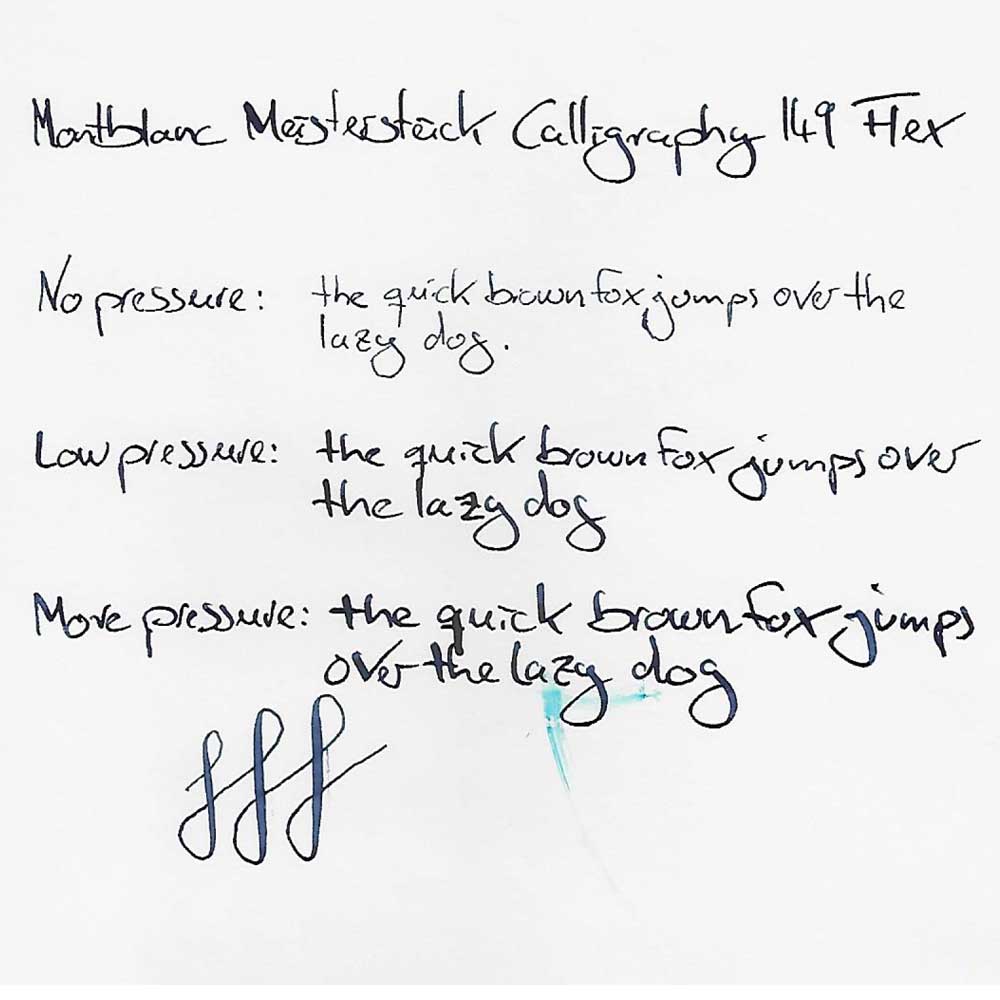 Montblanc Meisterstück Calligraphy 149 Flex
No pressure: the quick brown fox jumps over the
lazy dog.
Low pressure: the quick brown fox jumps over
the lazy dog
More pressure: the quick brown fox jumps
over the lazy dog
fff